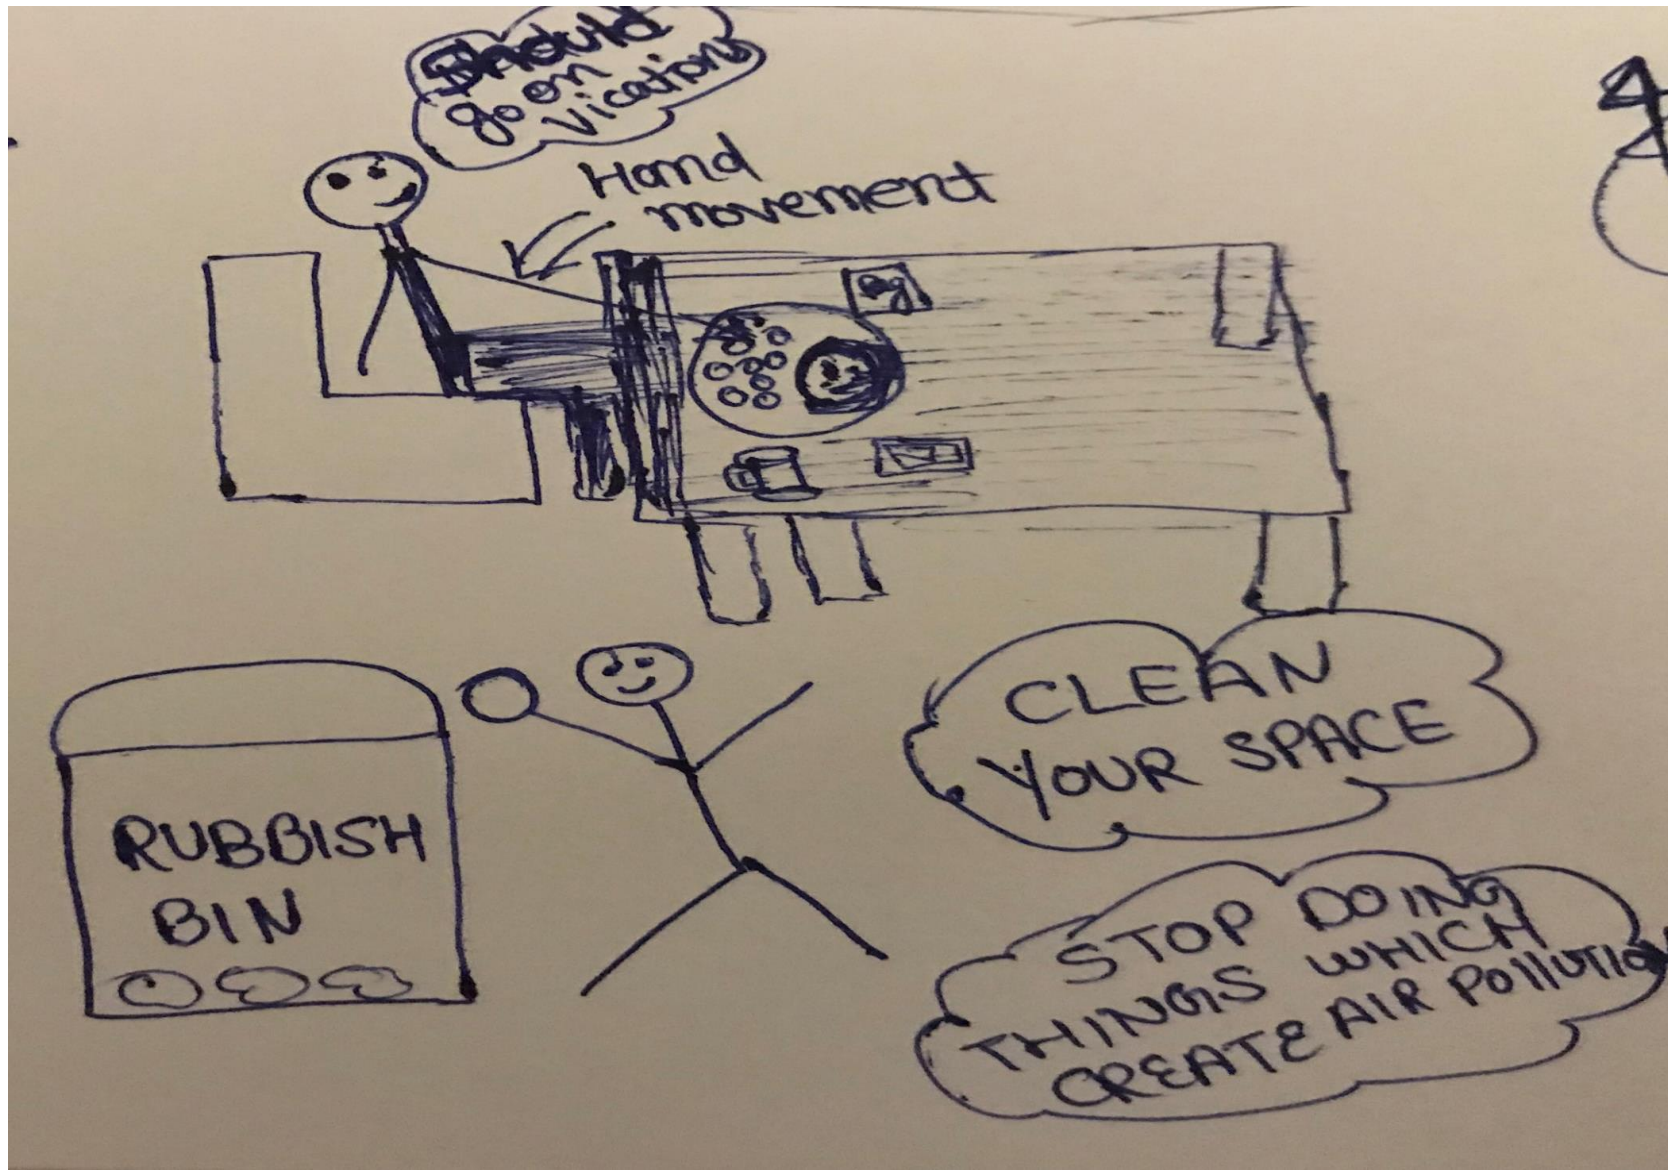 Should
go on
vication
Hand
movement
CLEAN
YOUR SPACE
RUBBISH
BIN
STOP DOING
THINGS WHICH
CREATE AIR POllUTIO